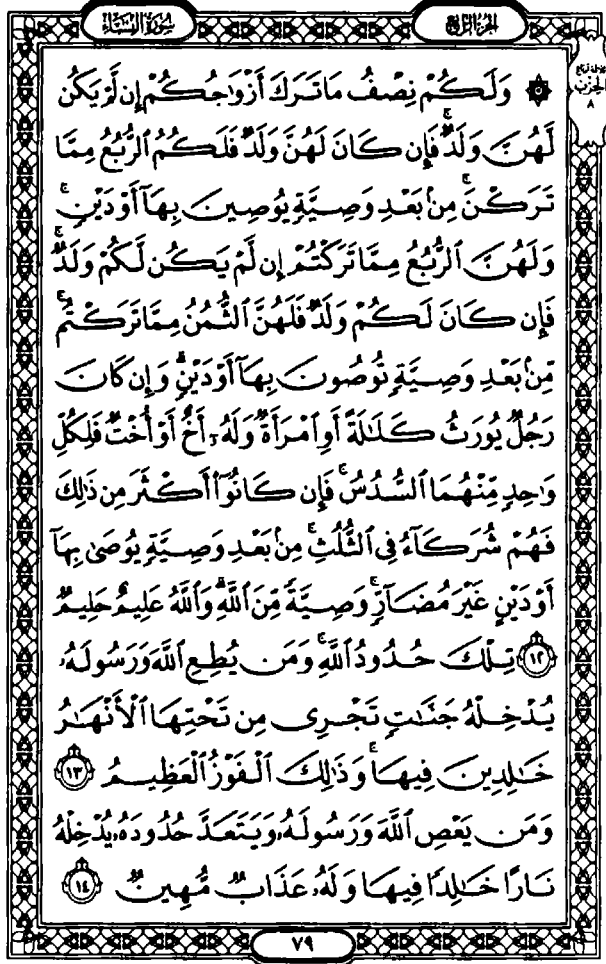 سُورَةُ النِّسَاءِ
الجُزْءُ الرَّابِعُ
الحِزْب
٨
۞ وَلَكُمْ نِصْفُ مَا تَرَكَ أَزْوَٰجُكُمْ إِن لَّمْ يَكُن
لَّهُنَّ وَلَدٌ ۚ فَإِن كَانَ لَهُنَّ وَلَدٌ فَلَكُمُ ٱلرُّبُعُ مِمَّا
تَرَكْنَ ۚ مِنۢ بَعْدِ وَصِيَّةٍ يُوصِينَ بِهَآ أَوْ دَيْنٍ ۚ
وَلَهُنَّ ٱلرُّبُعُ مِمَّا تَرَكْتُمْ إِن لَّمْ يَكُن لَّكُمْ وَلَدٌ ۚ
فَإِن كَانَ لَكُمْ وَلَدٌ فَلَهُنَّ ٱلثُّمُنُ مِمَّا تَرَكْتُم ۚ
مِّنۢ بَعْدِ وَصِيَّةٍ تُوصُونَ بِهَآ أَوْ دَيْنٍ ۗ وَإِن كَانَ
رَجُلٌ يُورَثُ كَلَـٰلَةً أَوِ ٱمْرَأَةٌ وَلَهُۥٓ أَخٌ أَوْ أُخْتٌ فَلِكُلِّ
وَٰحِدٍ مِّنْهُمَا ٱلسُّدُسُ ۚ فَإِن كَانُوٓا۟ أَكْثَرَ مِن ذَٰلِكَ
فَهُمْ شُرَكَآءُ فِى ٱلثُّلُثِ ۚ مِنۢ بَعْدِ وَصِيَّةٍ يُوصَىٰ بِهَآ
أَوْ دَيْنٍ غَيْرَ مُضَآرٍّ ۚ وَصِيَّةً مِّنَ ٱللَّهِ ۗ وَٱللَّهُ عَلِيمٌ حَلِيمٌ
١٢ تِلْكَ حُدُودُ ٱللَّهِ ۚ وَمَن يُطِعِ ٱللَّهَ وَرَسُولَهُۥ
يُدْخِلْهُ جَنَّـٰتٍ تَجْرِى مِن تَحْتِهَا ٱلْأَنْهَـٰرُ
خَـٰلِدِينَ فِيهَا ۚ وَذَٰلِكَ ٱلْفَوْزُ ٱلْعَظِيمُ ١٣
وَمَن يَعْصِ ٱللَّهَ وَرَسُولَهُۥ وَيَتَعَدَّ حُدُودَهُۥ يُدْخِلْهُ
نَارًا خَـٰلِدًا فِيهَا وَلَهُۥ عَذَابٌ مُّهِينٌ ١٤
٧٩